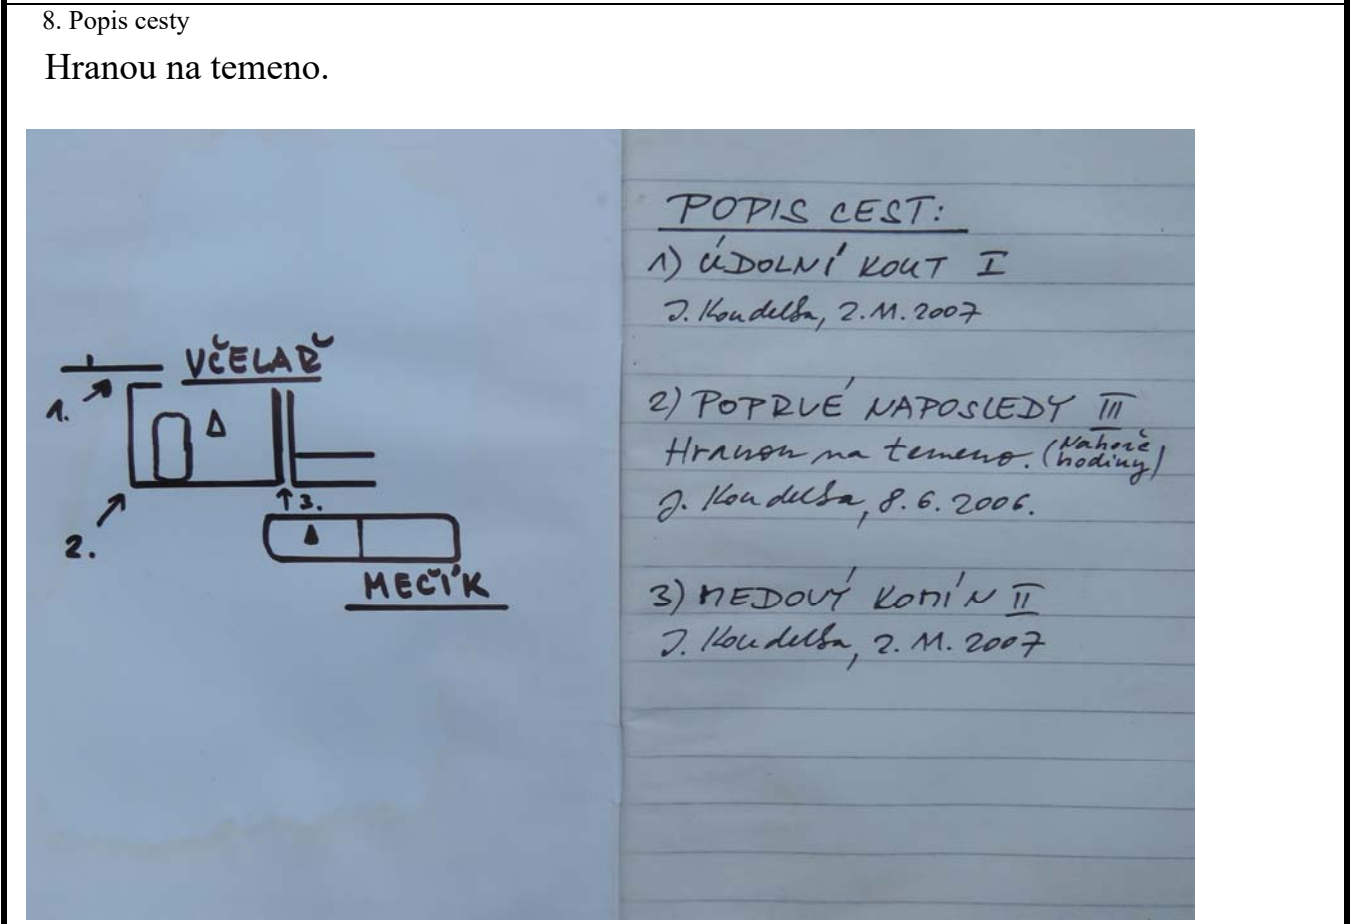 8. Popis cesty
Hranou na temeno.
VČELAŘ
1.
2.
3.
MEČÍK
POPIS CEST:
1) ÚDOLNÍ KOUT I
J. Koudelka, 2.11.2007
2) POPRVÉ NAPOSLEDY III
Hranou na temeno. (Nahoře hodiny)
J. Koudelka, 8.6.2006.
3) MEDOVÝ KOMÍN II
J. Koudelka, 2.11.2007